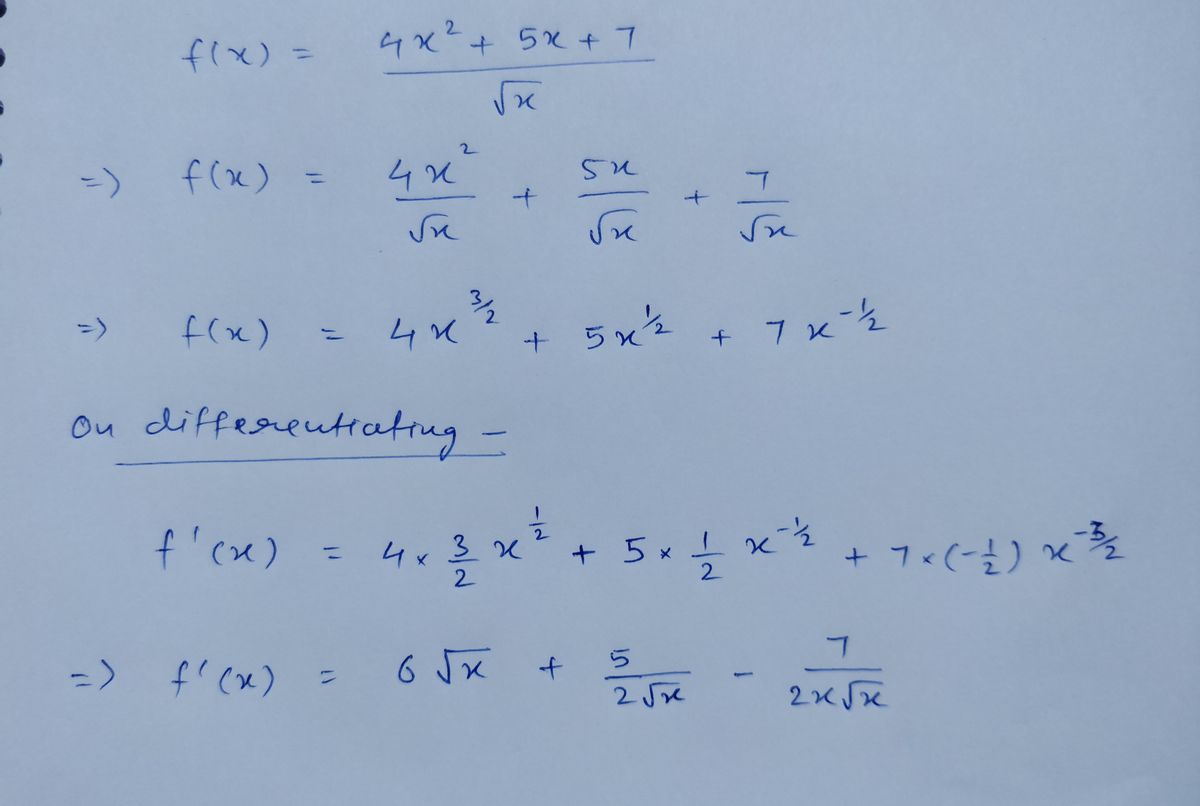 f(x) = (4x² + 5x + 7)/√x
=> f(x) = 4x²/√x + 5x/√x + 7/√x
=> f(x) = 4x^(3/2) + 5x^(1/2) + 7x^(-1/2)
On differentiating -
f'(x) = 4 × 3/2 x^(1/2) + 5 × 1/2 x^(-1/2) + 7 × (-1/2) x^(-3/2)
=> f'(x) = 6√x + 5/(2√x) - 7/(2x√x)